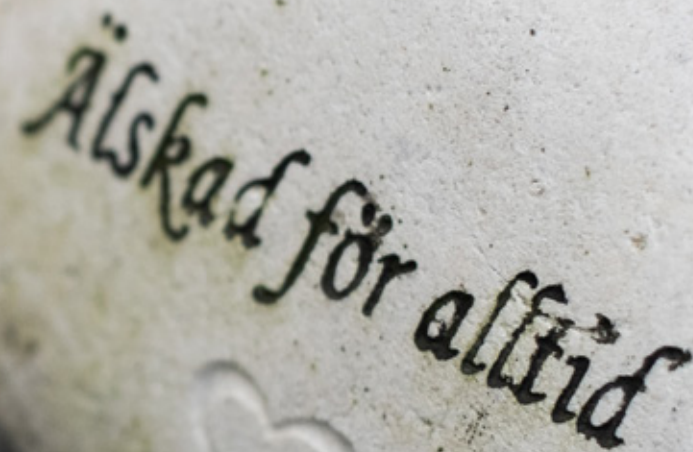 Älskad för alltid